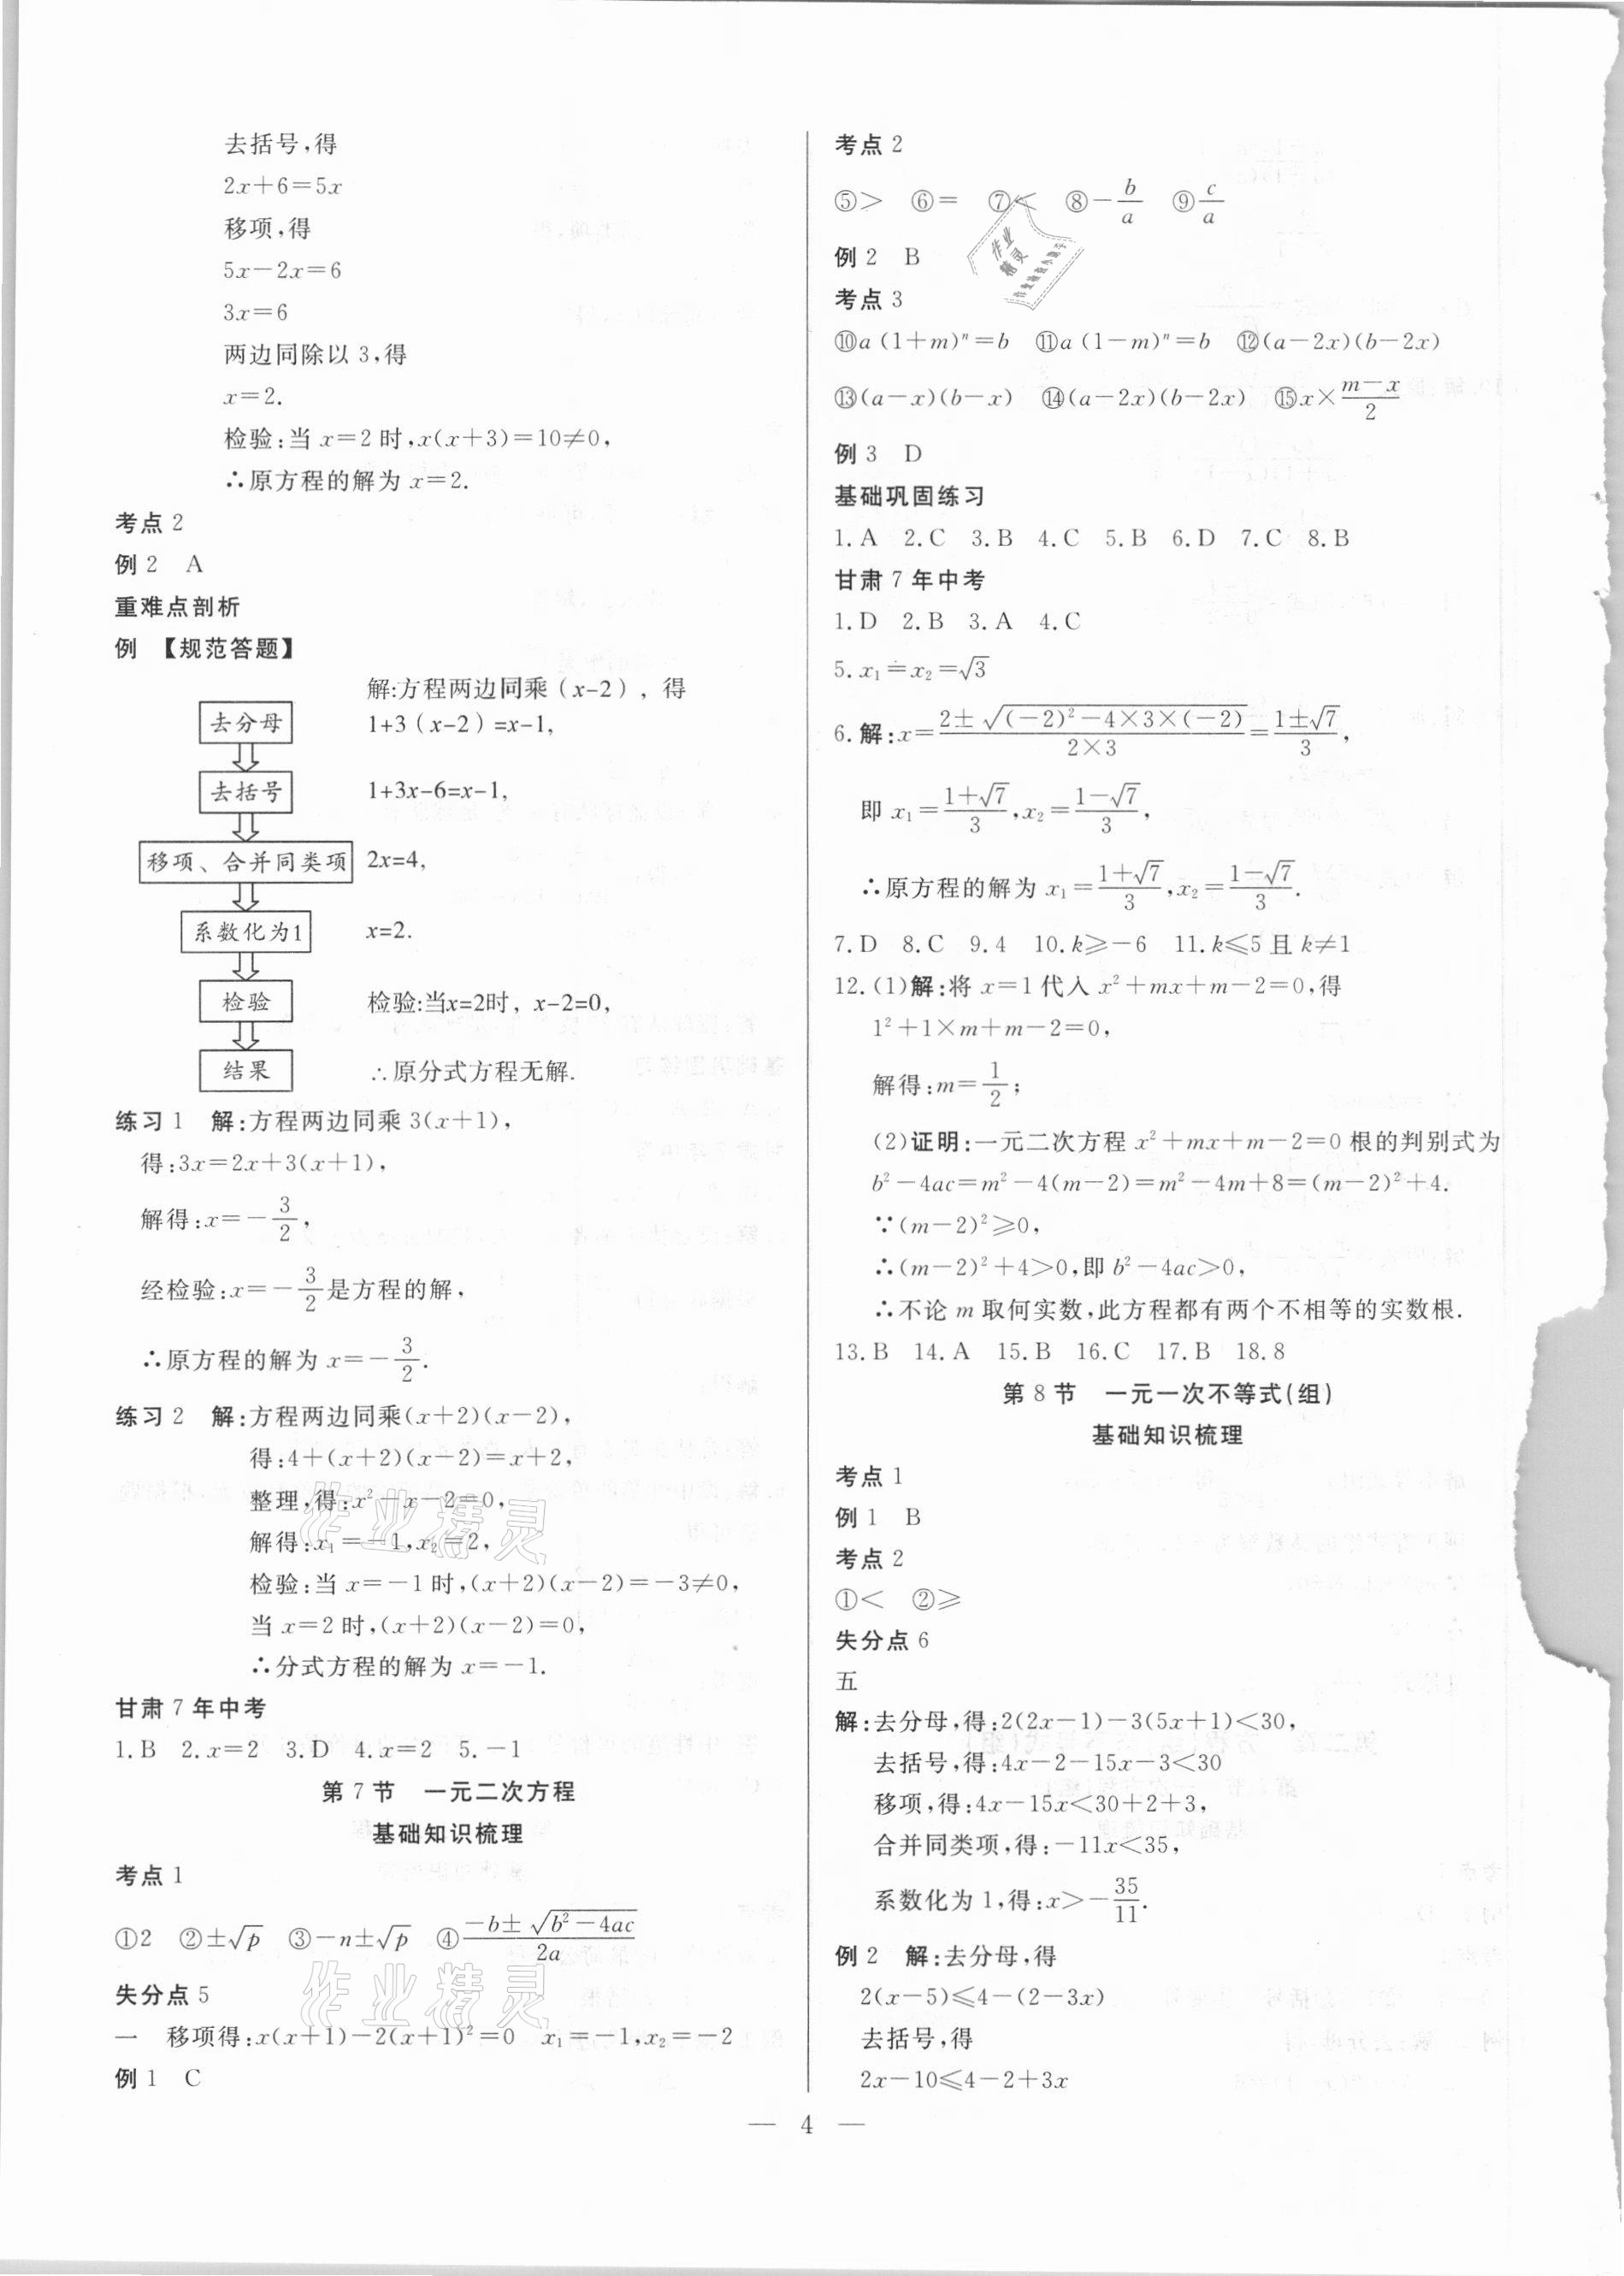 去括号,得
2x+6=5x
移项,得
5x-2x=6
3x=6
两边同除以 3,得
x=2.
检验:当 x=2 时,x(x+3)=10≠0,
∴原方程的解为 x=2.
考点 2
例 2 A
重难点剖析
例 【规范答题】
解:方程两边同乘（x-2）, 得
去分母 1+3（x-2）=x-1,
去括号 1+3x-6=x-1,
移项、合并同类项 2x=4,
系数化为1 x=2.
检验 检验:当x=2时, x-2=0,
结果 ∴原分式方程无解.
练习 1 解:方程两边同乘 3(x+1),
得:3x=2x+3(x+1),
解得:x=-3/2,
经检验:x=-3/2是方程的解,
∴原方程的解为 x=-3/2.
练习 2 解:方程两边同乘(x+2)(x-2),
得:4+(x+2)(x-2)=x+2,
整理,得:x²-x-2=0,
解得:x₁=-1,x₂=2,
检验:当 x=-1 时,(x+2)(x-2)=-3≠0,
当 x=2 时,(x+2)(x-2)=0,
∴分式方程的解为 x=-1.
甘肃 7 年中考
1.B 2.x=2 3.D 4.x=2 5.-1
第 7 节 一元二次方程
基础知识梳理
考点 1
①2 ②±√p ③-n±√p ④(-b±√(b²-4ac))/2a
失分点 5
一 移项得:x(x+1)-2(x+1)²=0 x₁=-1,x₂=-2
例 1 C
考点 2
⑤> ⑥= ⑦< ⑧-b/a ⑨c/a
例 2 B
考点 3
⑩a(1+m)ⁿ=b ⑪a(1-m)ⁿ=b ⑫(a-2x)(b-2x)
⑬(a-x)(b-x) ⑭(a-2x)(b-2x) ⑮x×(m-x)/2
例 3 D
基础巩固练习
1.A 2.C 3.B 4.C 5.B 6.D 7.C 8.B
甘肃 7 年中考
1.D 2.B 3.A 4.C
5.x₁=x₂=√3
6.解:x=(2±√((-2)²-4×3×(-2)))/(2×3)=(1±√7)/3,
即 x₁=(1+√7)/3,x₂=(1-√7)/3,
∴原方程的解为 x₁=(1+√7)/3,x₂=(1-√7)/3.
7.D 8.C 9.4 10.k≥-6 11.k≤5 且 k≠1
12.(1)解:将 x=1 代入 x²+mx+m-2=0,得
1²+1×m+m-2=0,
解得:m=1/2;
(2)证明:一元二次方程 x²+mx+m-2=0 根的判别式为
b²-4ac=m²-4(m-2)=m²-4m+8=(m-2)²+4.
∵(m-2)²≥0,
∴(m-2)²+4>0,即 b²-4ac>0,
∴不论 m 取何实数,此方程都有两个不相等的实数根.
13.B 14.A 15.B 16.C 17.B 18.8
第 8 节 一元一次不等式(组)
基础知识梳理
考点 1
例 1 B
考点 2
①< ②≥
失分点 6
五
解:去分母,得:2(2x-1)-3(5x+1)<30,
去括号,得:4x-2-15x-3<30
移项,得:4x-15x<30+2+3,
合并同类项,得:-11x<35,
系数化为 1,得:x>-35/11.
例 2 解:去分母,得
2(x-5)≤4-(2-3x)
去括号,得
2x-10≤4-2+3x
— 4 —
作业精灵
作业精灵
作业
精灵